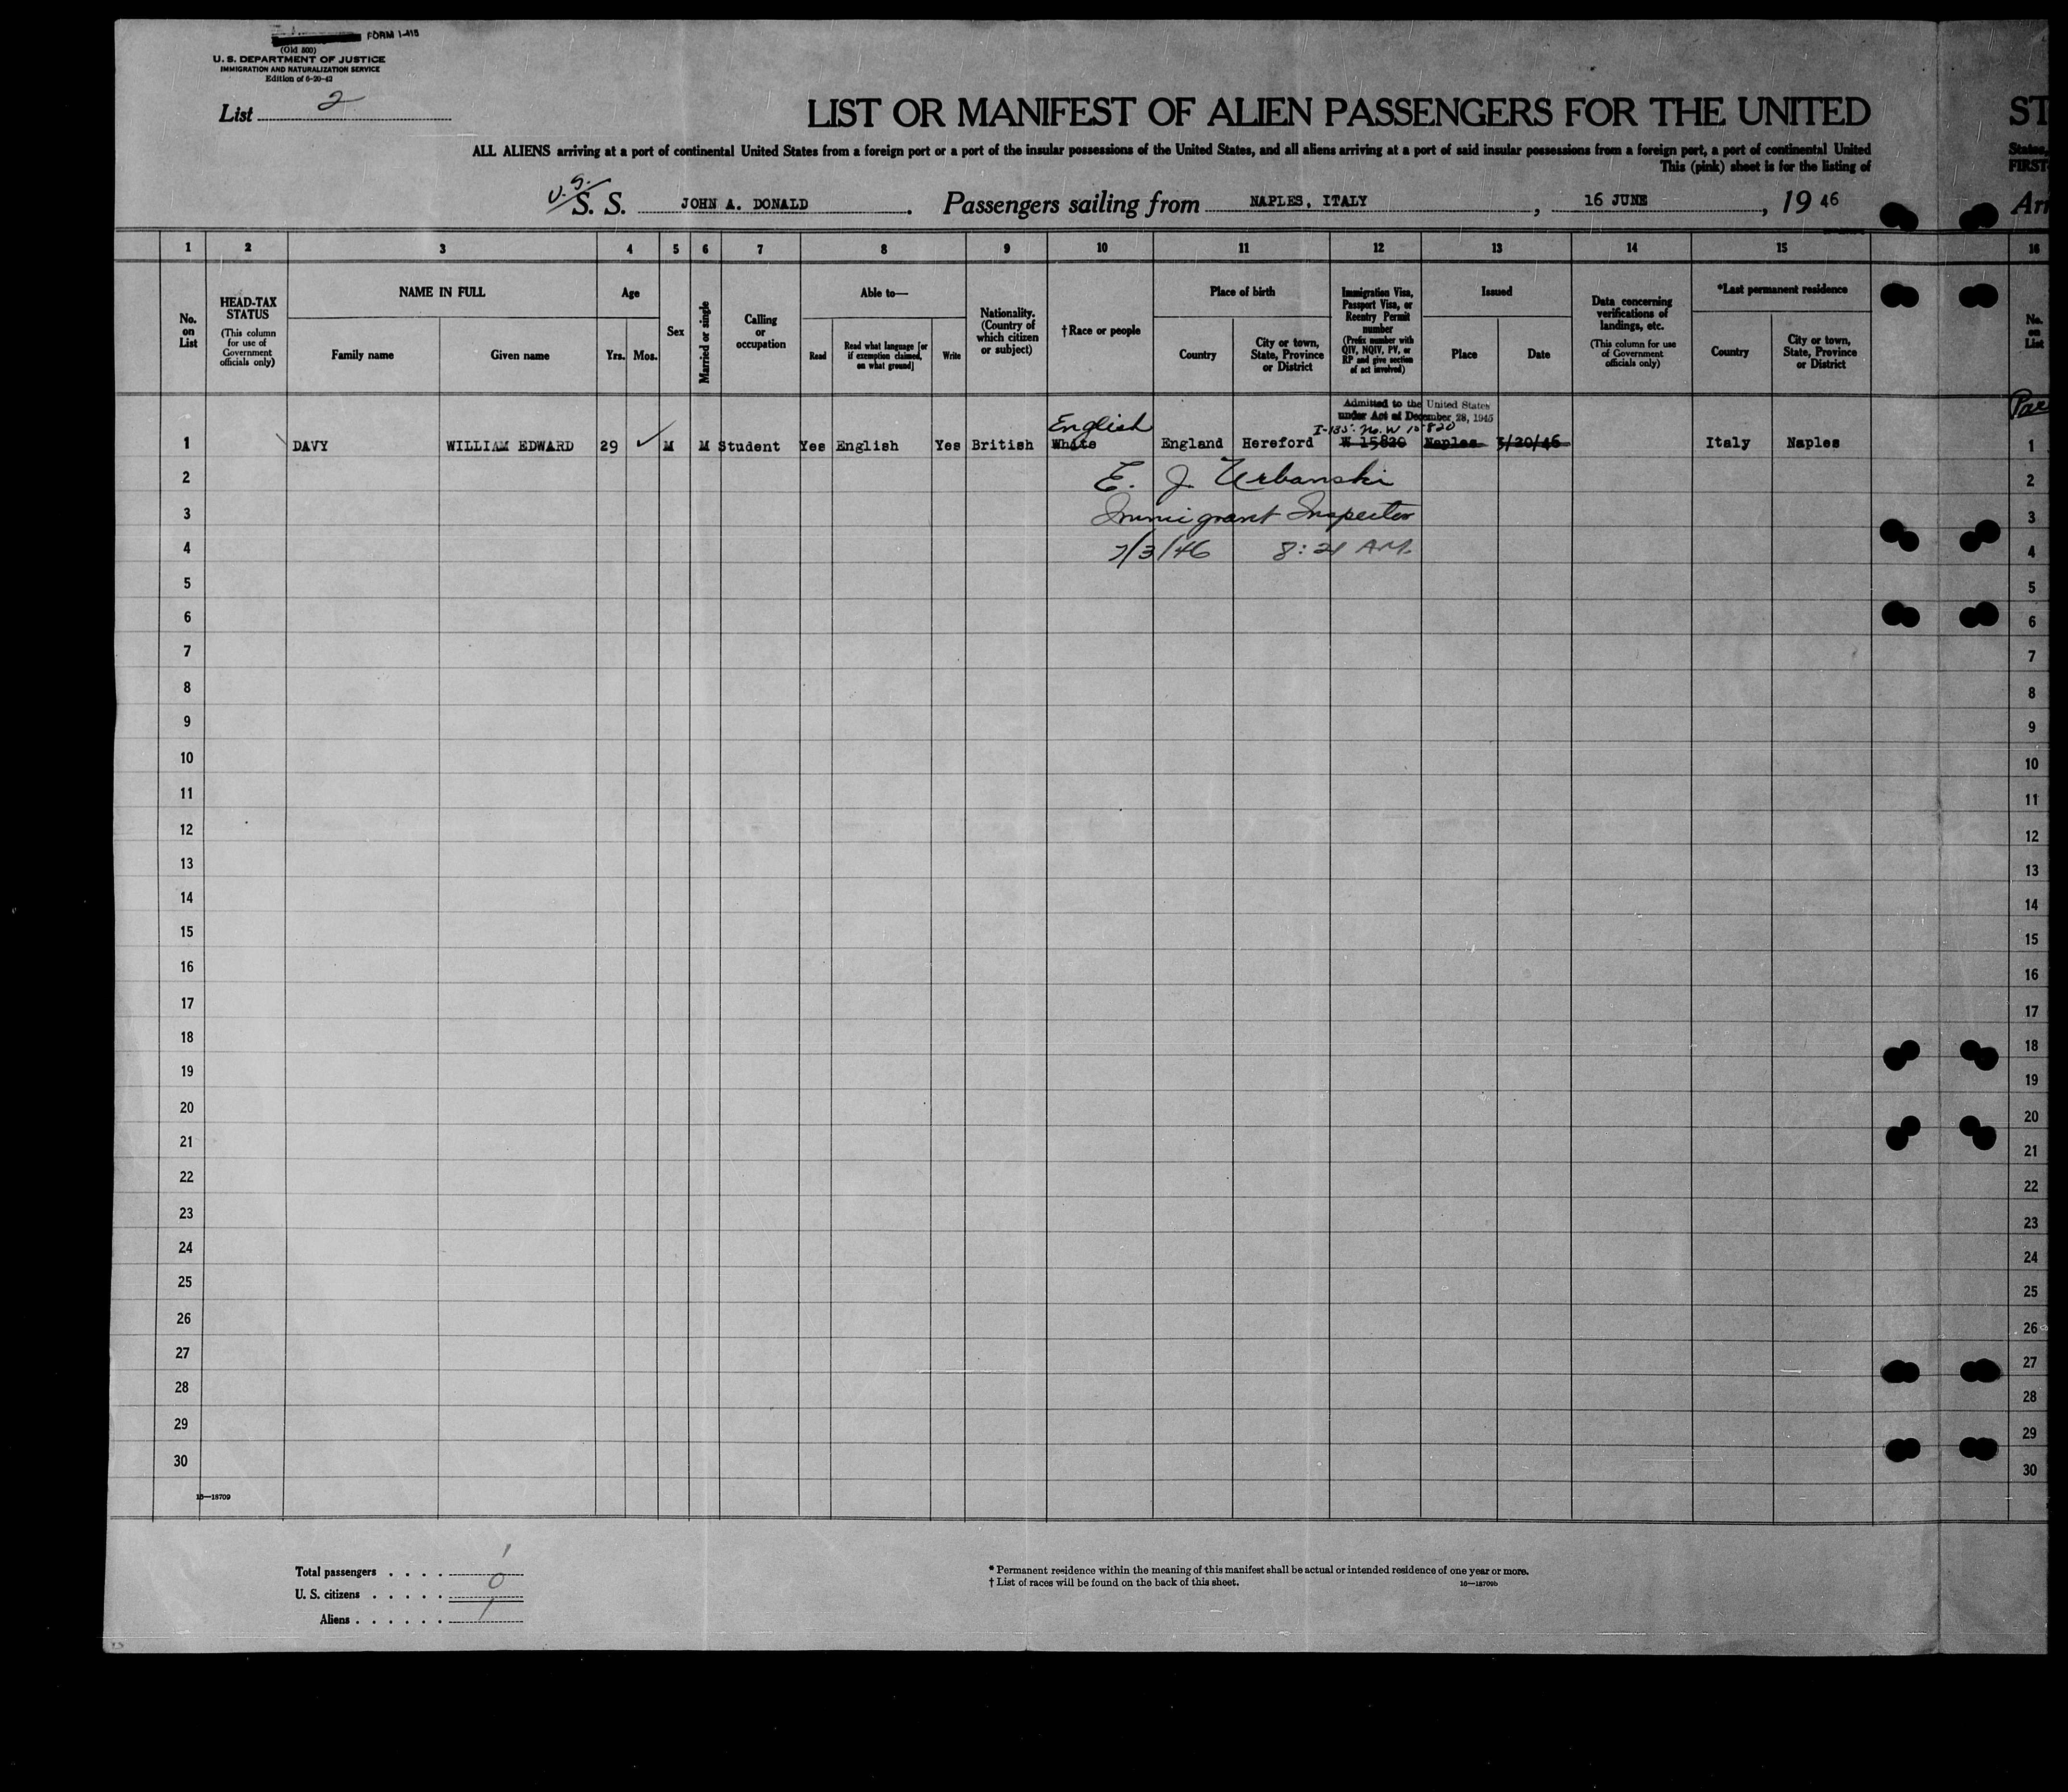 FORM I-415
(Old 500)
U. S. DEPARTMENT OF JUSTICE
IMMIGRATION AND NATURALIZATION SERVICE
Edition of 6-20-42
List 2
LIST OR MANIFEST OF ALIEN PASSENGERS FOR THE UNITED ST
ALL ALIENS arriving at a port of continental United States from a foreign port or a port of the insular possessions of the United States, and all aliens arriving at a port of said insular possessions from a foreign port, a port of continental United States,
This (pink) sheet is for the listing of FIRST
U.S. S. S. JOHN A. DONALD. Passengers sailing from NAPLES, ITALY, 16 JUNE, 1946 Arr
1 2 3 4 5 6 7 8 9 10 11 12 13 14 15 16
No. on List
HEAD-TAX STATUS (This column for use of Government officials only)
NAME IN FULL
Family name Given name
Age
Yrs. Mos.
Sex
Married or single
Calling or occupation
Able to—
Read
Read what language [or if exemption claimed, on what ground]
Write
Nationality. (Country of which citizen or subject)
†Race or people
Place of birth
Country
City or town, State, Province or District
Immigration Visa, Passport Visa, or Reentry Permit number (Prefix number with QIV, NQIV, PV, or RP and give section of act involved)
Issued
Place Date
Data concerning verifications of landings, etc. (This column for use of Government officials only)
*Last permanent residence
Country
City or town, State, Province or District
No. on List
Admitted to the United States
under Act of December 28, 1945
English I-135: No. W 15820
1 DAVY WILLIAM EDWARD 29 M M Student Yes English Yes British White England Hereford W 15820 Naples 3/20/46 Italy Naples 1
2 E. J. Urbanski 2
3 Immigrant Inspector 3
4 7/3/46 8:21 AM. 4
5 5
6 6
7 7
8 8
9 9
10 10
11 11
12 12
13 13
14 14
15 15
16 16
17 17
18 18
19 19
20 20
21 21
22 22
23 23
24 24
25 25
26 26
27 27
28 28
29 29
30 30
16—18709
Total passengers . . . . 1
U. S. citizens . . . . . 0
Aliens . . . . . . 1
* Permanent residence within the meaning of this manifest shall be actual or intended residence of one year or more.
† List of races will be found on the back of this sheet. 16—18709b